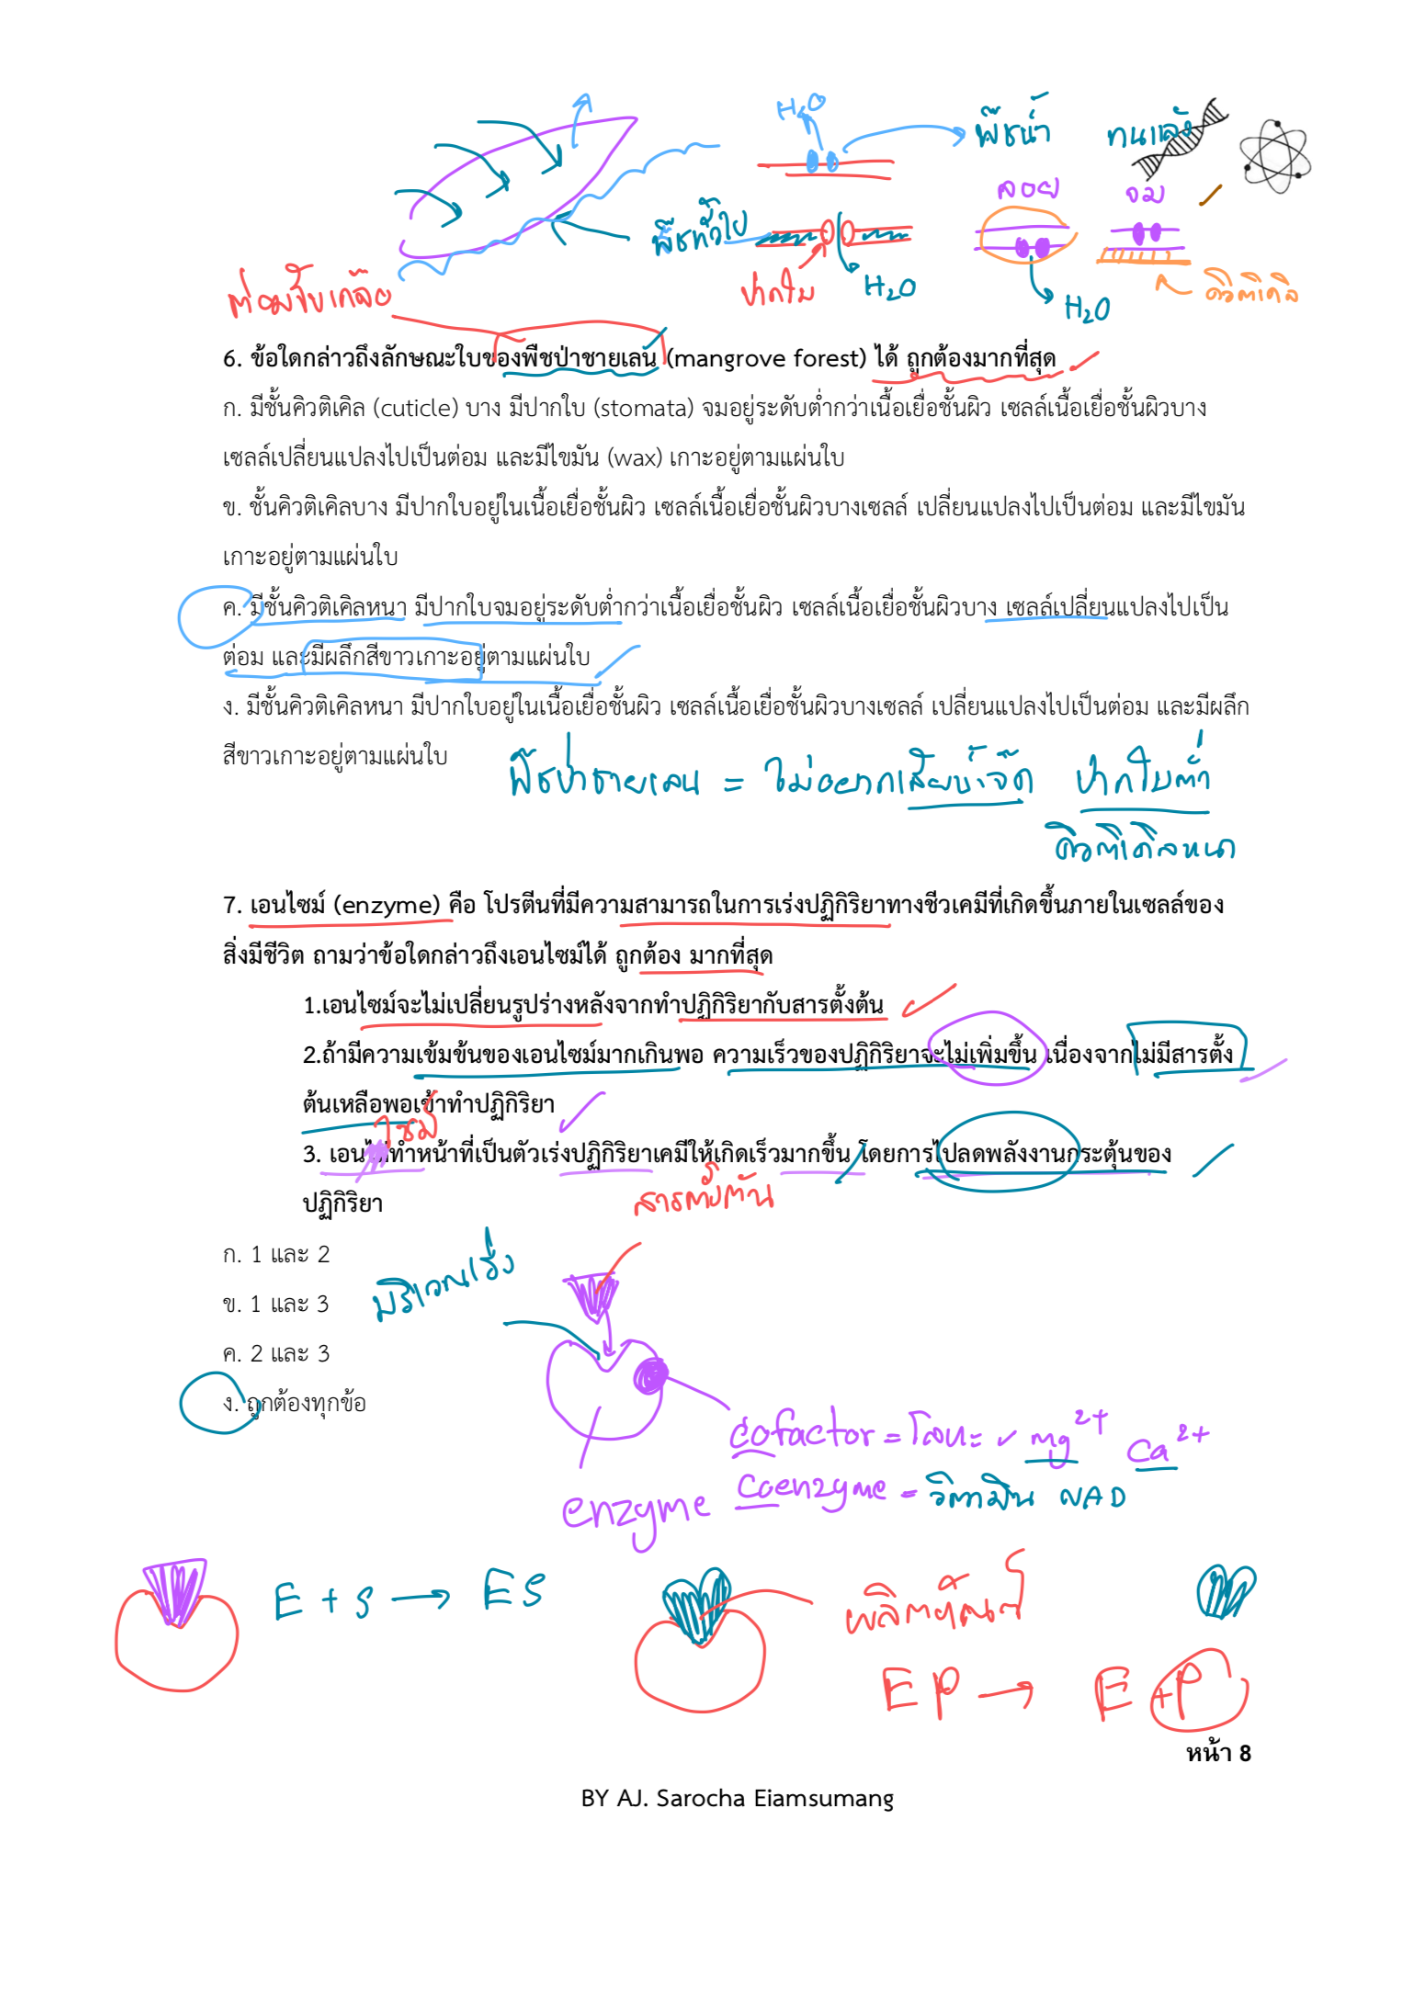 H₂O
พืชน้ำ
ทนแล้ง
ลอย
จม
พืชทั่วไป
ปากใบ
H₂O
H₂O
คิวติเคิล
ต่อมขับเกลือ
6. ข้อใดกล่าวถึงลักษณะใบของพืชป่าชายเลน (mangrove forest) ได้ ถูกต้องมากที่สุด
ก. มีชั้นคิวติเคิล (cuticle) บาง มีปากใบ (stomata) จมอยู่ระดับต่ำกว่าเนื้อเยื่อชั้นผิว เซลล์เนื้อเยื่อชั้นผิวบาง
เซลล์เปลี่ยนแปลงไปเป็นต่อม และมีไขมัน (wax) เกาะอยู่ตามแผ่นใบ
ข. ชั้นคิวติเคิลบาง มีปากใบอยู่ในเนื้อเยื่อชั้นผิว เซลล์เนื้อเยื่อชั้นผิวบางเซลล์ เปลี่ยนแปลงไปเป็นต่อม และมีไขมัน
เกาะอยู่ตามแผ่นใบ
ค. มีชั้นคิวติเคิลหนา มีปากใบจมอยู่ระดับต่ำกว่าเนื้อเยื่อชั้นผิว เซลล์เนื้อเยื่อชั้นผิวบาง เซลล์เปลี่ยนแปลงไปเป็น
ต่อม และมีผลึกสีขาวเกาะอยู่ตามแผ่นใบ
ง. มีชั้นคิวติเคิลหนา มีปากใบอยู่ในเนื้อเยื่อชั้นผิว เซลล์เนื้อเยื่อชั้นผิวบางเซลล์ เปลี่ยนแปลงไปเป็นต่อม และมีผลึก
สีขาวเกาะอยู่ตามแผ่นใบ
พืชป่าชายเลน = ไม่อยากเสียน้ำจืด ปากใบต่ำ
คิวติเคิลหนา
7. เอนไซม์ (enzyme) คือ โปรตีนที่มีความสามารถในการเร่งปฏิกิริยาทางชีวเคมีที่เกิดขึ้นภายในเซลล์ของ
สิ่งมีชีวิต ถามว่าข้อใดกล่าวถึงเอนไซม์ได้ ถูกต้อง มากที่สุด
1.เอนไซม์จะไม่เปลี่ยนรูปร่างหลังจากทำปฏิกิริยากับสารตั้งต้น
2.ถ้ามีความเข้มข้นของเอนไซม์มากเกินพอ ความเร็วของปฏิกิริยาจะไม่เพิ่มขึ้น เนื่องจากไม่มีสารตั้ง
ต้นเหลือพอเข้าทำปฏิกิริยา
ไซม์
3. เอนไม่ทำหน้าที่เป็นตัวเร่งปฏิกิริยาเคมีให้เกิดเร็วมากขึ้น โดยการไปลดพลังงานกระตุ้นของ
ปฏิกิริยา
สารตั้งต้น
ก. 1 และ 2
ข. 1 และ 3
บริเวณเร่ง
ค. 2 และ 3
ง. ถูกต้องทุกข้อ
cofactor = โลหะ ✓ Mg²⁺ Ca²⁺
coenzyme = วิตามิน NAD
enzyme
E + S → ES
ผลิตภัณฑ์
EP → E + P
หน้า 8
BY AJ. Sarocha Eiamsumang